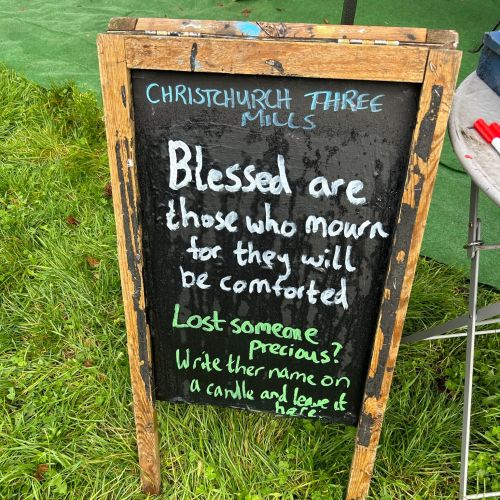 CHRISTCHURCH THREE
MILLS
Blessed are
those who mourn
for they will
be comforted
Lost someone
precious?
Write ther name on
a candle and leave it
here.